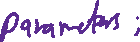 Parameters ;